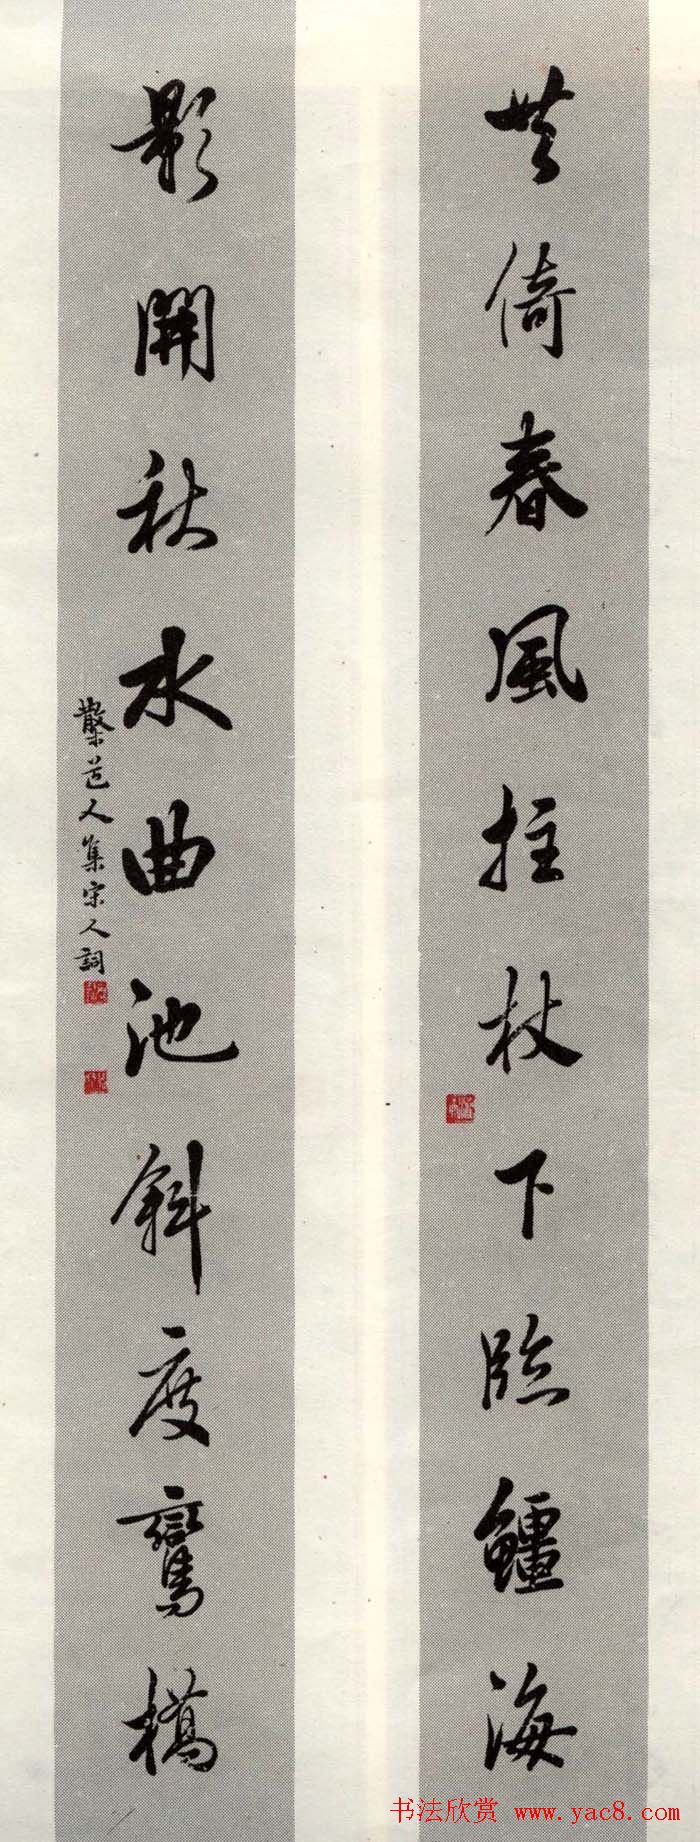 共倚春風拄杖下臨䲔海
影開秋水曲池斜度鸞橋
道人集宋人詞
书法欣赏 www.yac8.com